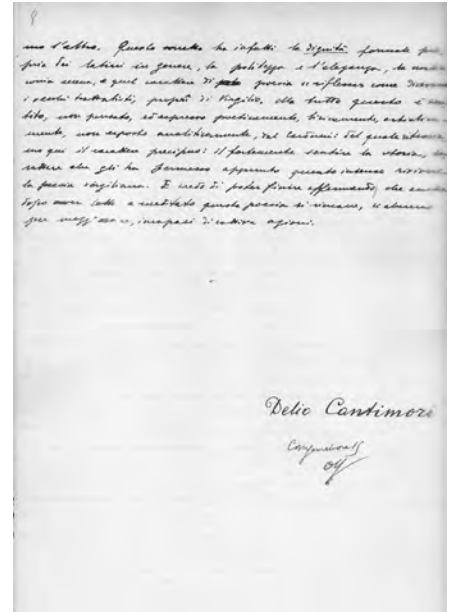 8
mo l'altro. Questo sonetto ha infatti la dignità formale pro
pria dei latini in genere, la politezza e l'eleganza, la
e quel carattere di poesia e riflessa come dicevano
i vecchi trattatisti, proprî di Virgilio. Ma tutto questo è sen
tito, non pensato, ed espresso poeticamente, liricamente,
mente, non esposto analiticamente, dal Carducci: del quale
mo qui il carattere precipuo: il fortemente sentire la storia,
rattere che gli ha permesso appunto questo intenso rivivere
la poesia virgiliana. E credo di poter finire affermando, che
dopo aver letto e meditato questa poesia si rimane, si
per meggi'ore, incapaci di cattive azioni.
Delio Cantimori